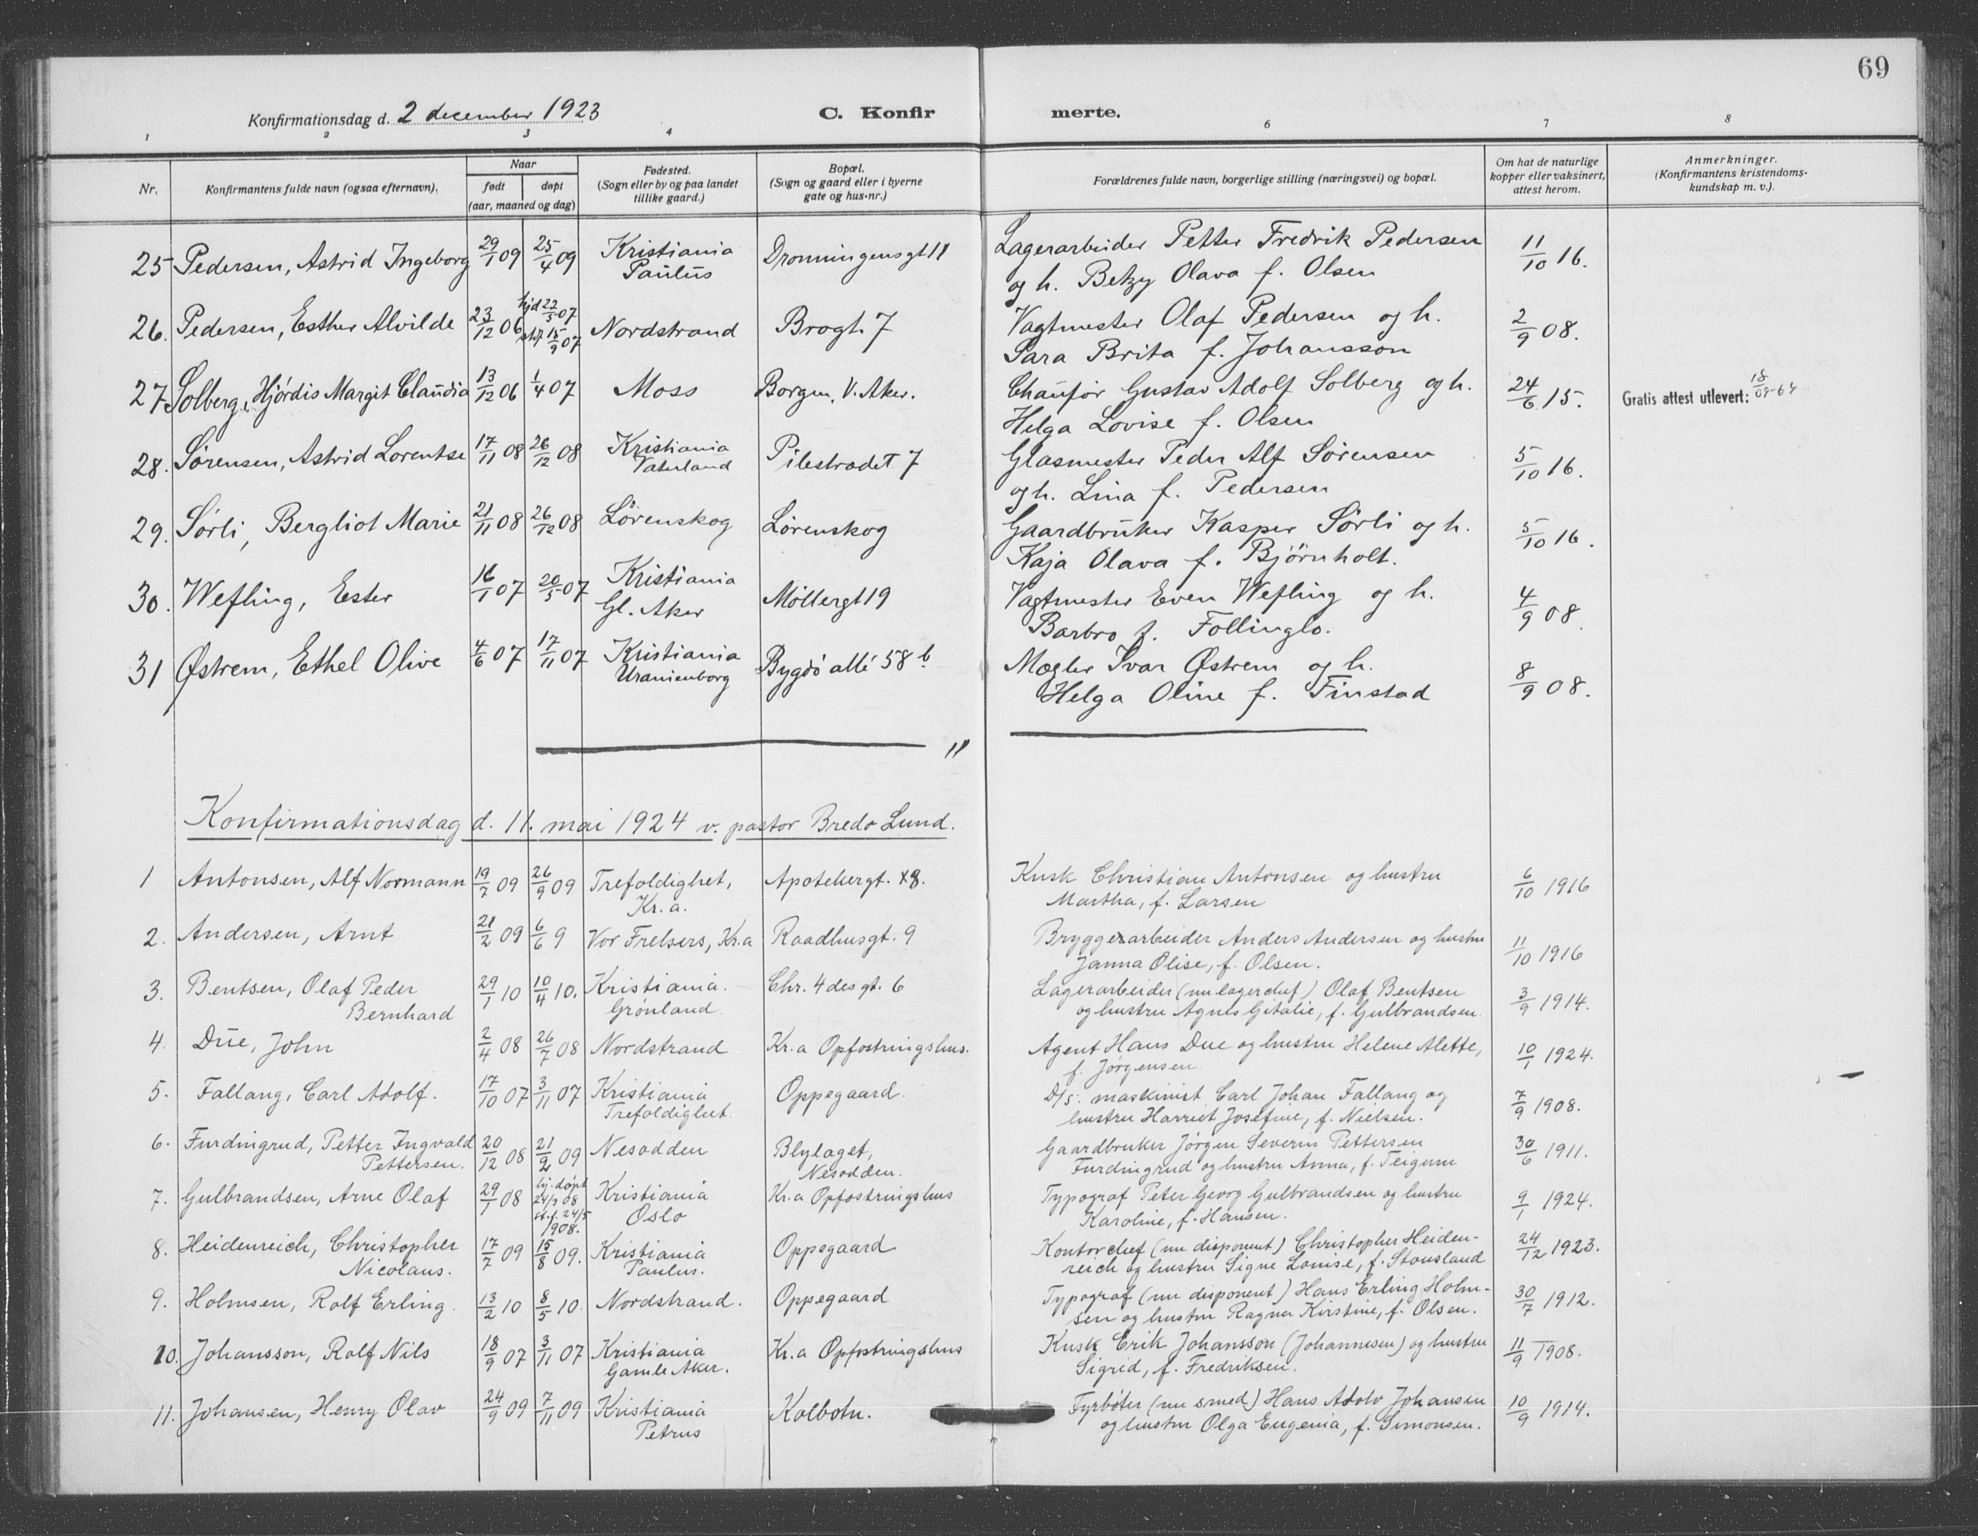 69
Konfirmationsdag d. 2 december 1923 C. Konfir merte.
1 2 3 4 6 7 8
Nr. Konfirmantens fulde navn (ogsaa efternavn). Naar født døpt (aar, maaned og dag) Fødested. (Sogn eller by og paa landet tillike gaard.) Bopæl. (Sogn og gaard eller i byerne gate og hus-nr.) Forældrenes fulde navn, borgerlige stilling (næringsvei) og bopæl. Om hat de naturlige kopper eller vaksinert, attest herom. Anmerkninger. (Konfirmantens kristendoms- kundskap m. v.).
25 Pedersen, Astrid Ingeborg 29/1 09 25/4 09 Kristiania Paulus Dronningensgt 11 Lagerarbeider Petter Fredrik Pedersen 11/10 16.
og h. Betzy Olava f. Olsen
26. Pedersen, Esther Alvilde 23/12 06 hjd 22/5 07 stf 15/9 07 Nordstrand Brogt. 7 Vagtmester Olaf Pedersen og h. 2/9 08.
Sara Brita f. Johansson
27 Solberg, Hjørdis Margit Claudia 13/12 06 1/4 07 Moss Borgen, V. Aker. Chaufør Gustav Adolf Solberg og h. 24/6 15. Gratis attest utlevert: 18/09-64
Helga Lovise f. Olsen
28. Sørensen, Astrid Lorentse 17/11 08 26/12 08 Kristiania Vaterland Pilestrædet 7 Glasmester Peder Alf Sørensen 5/10 16.
og h. Lina f. Pedersen
29. Sørli, Bergliot Marie 21/11 08 26/12 08 Lørenskog Lørenskog Gaardbruker Kasper Sørli og h. 5/10 16.
Kaja Olava f. Bjørnholt.
30. Wefling, Ester 16/1 07 20/5 07 Kristiania Gl. Aker Møllergt 19 Vagtmester Even Wefling og h. 4/9 08.
Barbro f. Follinglo.
31 Østrem, Ethel Olive 4/6 07 17/11 07 Kristiania Uranienborg Bygdø allé 58 b Mægler Ivar Østrem og h. 8/9 08.
Helga Oline f. Finstad
Konfirmationsdag d. 11. mai 1924 v. pastor Bredo Lund.
1 Antonsen, Alf Normann 19/7 09 26/9 09 Trefoldighet, Kr.a. Apotekergt. 8. Kusk Christian Antonsen og hustru 6/10 1916
Martha, f. Larsen
2. Andersen, Arnt 21/2 09 6/6 9 Vor Frelsers, Kr.a Raadhusgt. 9 Bryggerarbeider Anders Andersen og hustru 11/10 1916
Janna Olise, f. Olsen.
3. Bentsen, Olaf Peder Bernhard 29/1 10 10/4 10. Kristiania. Grønland. Chr. 4des gt. 6 Lagerarbeider (nu lagerchef) Olaf Bentsen 3/9 1914.
og hustru Agnes Gitalie, f. Gulbrandsen
4. Due, John 2/4 08 26/7 08 Nordstrand Kr.a Opfostringshus. Agent Hans Due og hustru Helene Alette, 10/1 1924.
f. Jørgensen
5. Fallang, Carl Adolf. 17/10 07 3/11 07 Kristiania Trefoldighet. Oppegaard. D/s. maskinist Carl Johan Fallang og 7/9 1908.
hustru Harriet Josefine, f. Nielsen.
6. Furdingrud, Petter Ingvald Pettersen. 20/12 08 21/2 09 Nesodden Blylaget, Nesodden. Gaardbruker Jørgen Severin Pettersen 30/6 1911.
Furdingrud og hustru Anna, f. Teigum
7. Gulbrandsen, Arne Olaf 29/1 08 hj. døpt 24/3 08 st. f. 24/5 1908. Kristiania Oslo Kr.a Opfostringshus Typograf Peter Georg Gulbrandsen og hustru 9/1 1924.
Karoline, f. Hansen.
8. Heidenreich, Christopher Nicolaus. 17/7 09 15/8 09. Kristiania Paulus. Oppegaard Kontorchef (nu disponent) Christopher Heiden- 24/12 1923.
reich og hustru Signe Louise, f. Stousland
9. Holmsen, Rolf Erling. 13/2 10 8/5 10. Nordstrand. Oppegaard Typograf (nu disponent) Hans Erling Holm- 30/7 1912.
sen og hustru Ragna Kirstine, f. Olsen.
10. Johansson, Rolf Nils 18/9 07 3/11 07 Kristiania Gamle Aker. Kr.a Opfostringshus Kusk Erik Johansson (Johannesen) og hustru 11/9 1908.
Sigrid, f. Fredriksen.
11. Johansen, Henry Olav 24/9 09 7/11 09 Kristiania Petrus Kolbotn. Fyrbøter (nu smed) Hans Adolv Johansen 10/9 1914.
og hustru Olga Eugenia, f. Simonsen.